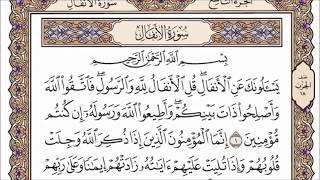 سورة الأنفال
الجزء التاسع
سُورَةُ الأَنفَالِ
بِسْمِ اللَّهِ الرَّحْمَٰنِ الرَّحِيمِ
يَسْـَٔلُونَكَ عَنِ ٱلْأَنفَالِ ۖ قُلِ ٱلْأَنفَالُ لِلَّهِ وَٱلرَّسُولِ ۖ فَٱتَّقُوا۟ ٱللَّهَ
وَأَصْلِحُوا۟ ذَاتَ بَيْنِكُمْ ۖ وَأَطِيعُوا۟ ٱللَّهَ وَرَسُولَهُۥٓ إِن كُنتُم
مُّؤْمِنِينَ ١ إِنَّمَا ٱلْمُؤْمِنُونَ ٱلَّذِينَ إِذَا ذُكِرَ ٱللَّهُ وَجِلَتْ
قُلُوبُهُمْ وَإِذَا تُلِيَتْ عَلَيْهِمْ ءَايَٰتُهُۥ زَادَتْهُمْ إِيمَٰنًا وَعَلَىٰ رَبِّهِمْ
الحزب
١٨